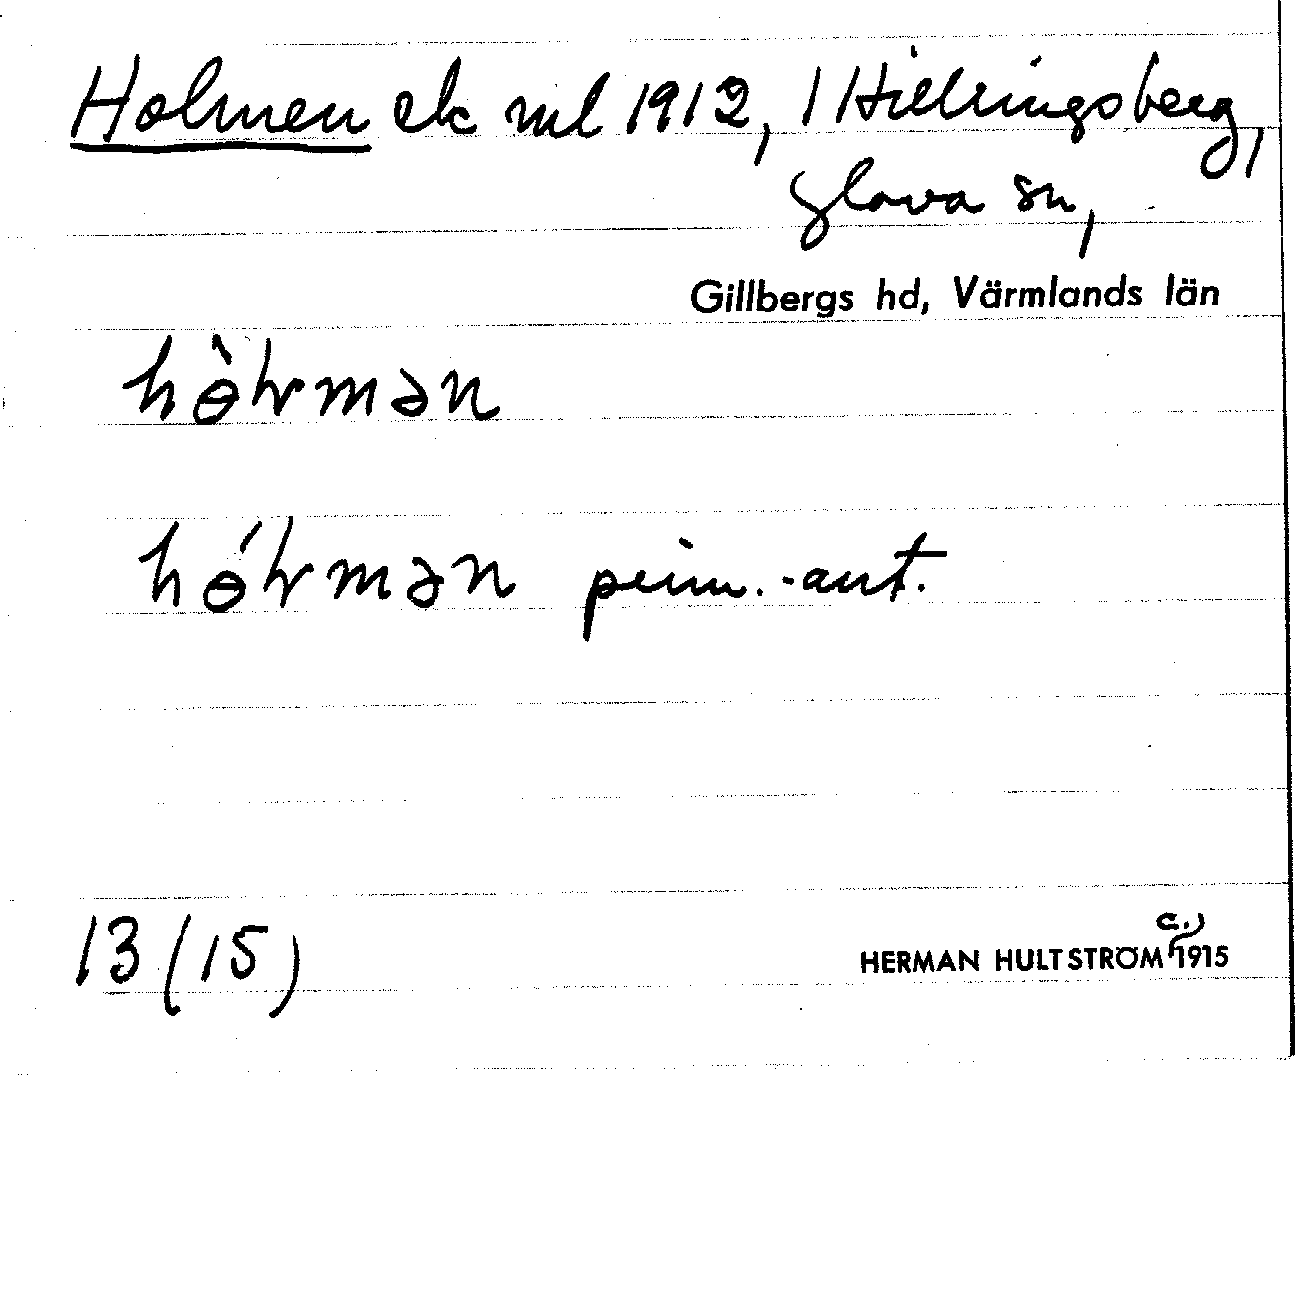 Holmen ek ml 1912, 1 Hillringsberg,
Glava sn,
Gillbergs hd, Värmlands län
prim.-ant.
13 (15)
HERMAN HULTSTRÖM c., 1915